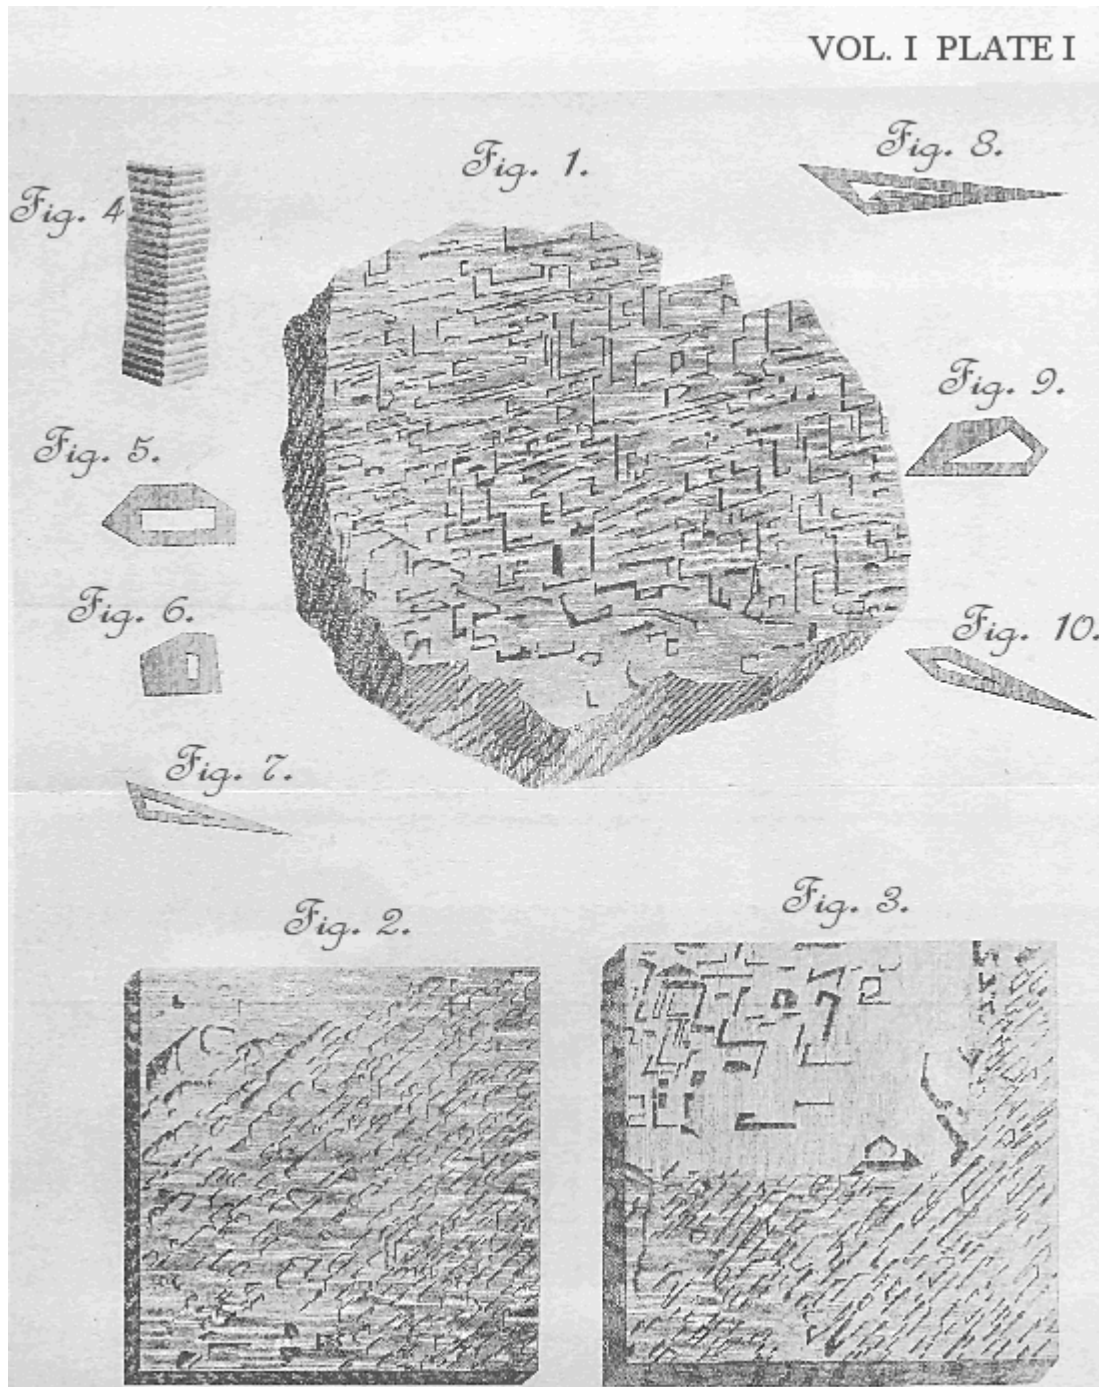 VOL. I PLATE I
Fig. 1.
Fig. 8.
Fig. 4
Fig. 9.
Fig. 5.
Fig. 6.
Fig. 10.
Fig. 7.
Fig. 2.
Fig. 3.